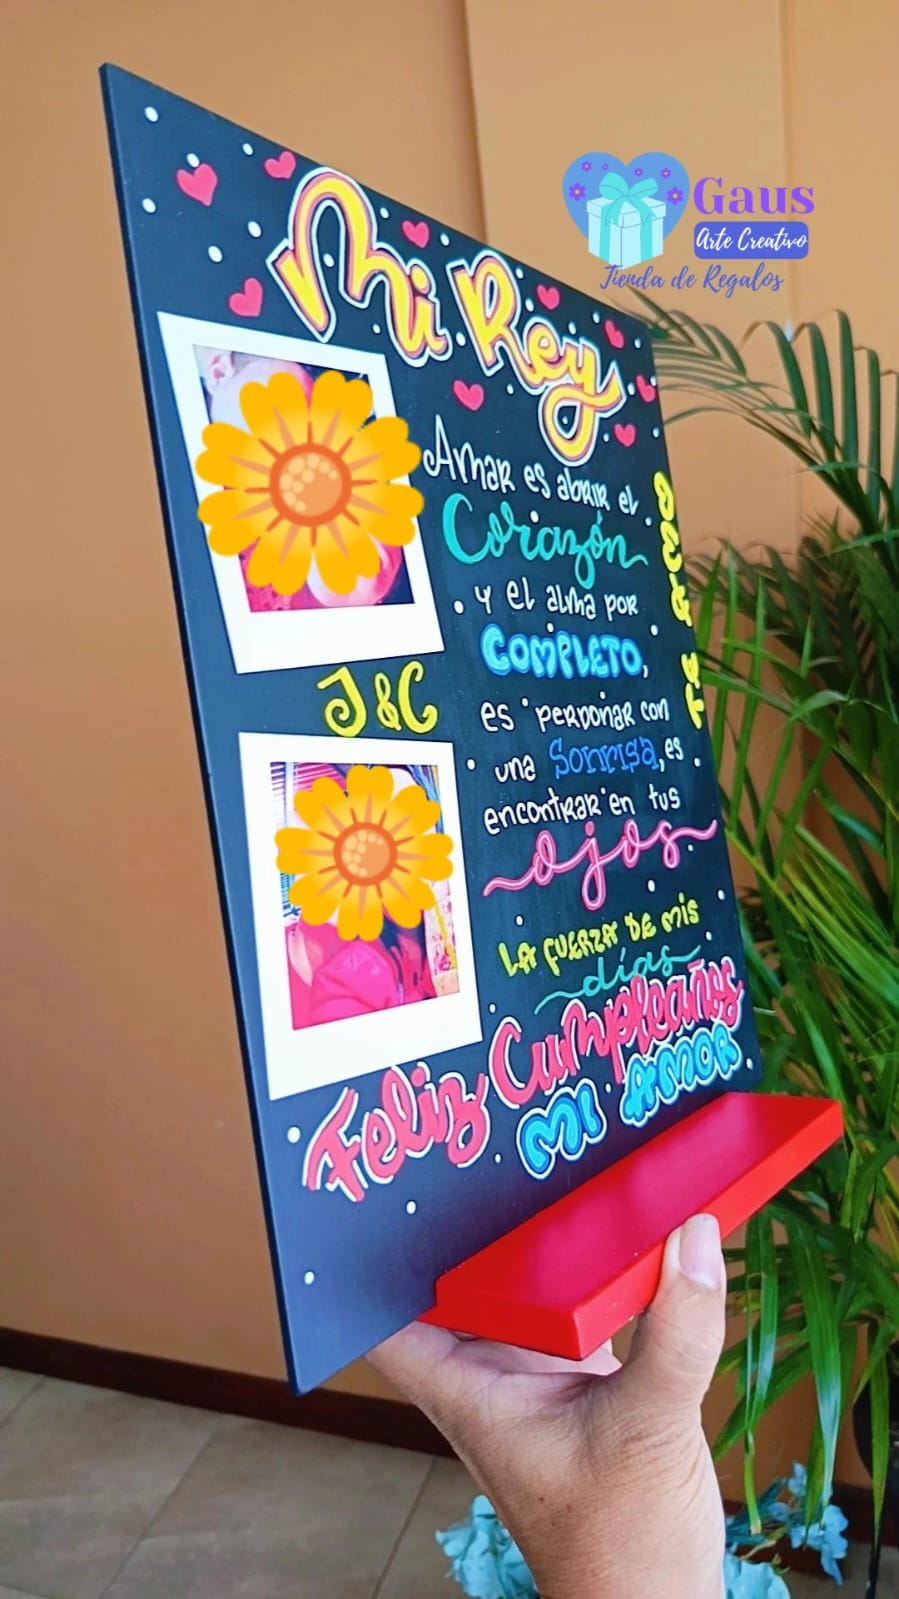 Gaus
Arte Creativo
Tienda de Regalos
Mi Rey
Amar es abrir el
Corazón
y el alma por
COMPLETO,
es perdonar con
una Sonrisa, es
encontrar en tus
ojos
LA FUERZA DE MIS
días
J & C
Feliz Cumpleaños
MI AMOR